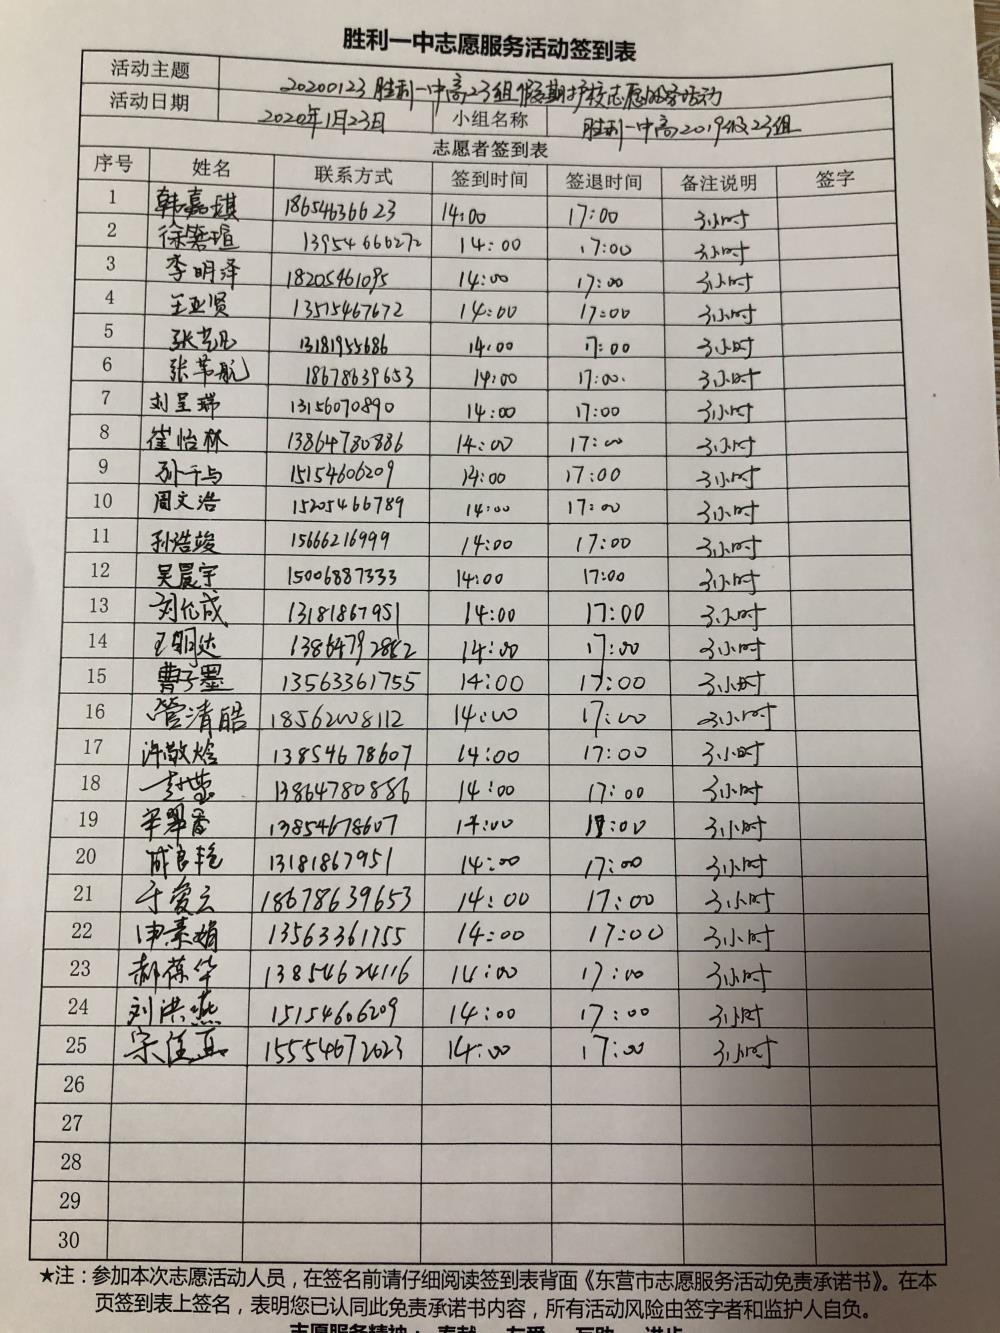 胜利一中志愿服务活动签到表
活动主题 20200123胜利一中高23组假期护校志愿服务活动
活动日期 2020年1月23日 小组名称 胜利一中高2019级23组
志愿者签到表
序号 姓名 联系方式 签到时间 签退时间 备注说明 签字
1 韩嘉琪 18654636623 14:00 17:00 3小时
2 徐箬瑄 13954666272 14:00 17:00 3小时
3 李明泽 18205461095 14:00 17:00 3小时
4 王亚贤 13515467672 14:00 17:00 3小时
5 张艺凡 13181955686 14:00 17:00 3小时
6 张苇航 18678639653 14:00 17:00. 3小时
7 刘呈瑞 13156070890 14:00 17:00 3小时
8 崔怡林 13864780886 14:00 17:00 3小时
9 孙千与 15154606209 14:00 17:00 3小时
10 周文浩 15205466789 14:00 17:00 3小时
11 孙浩竣 15666216999 14:00 17:00 3小时
12 吴晨宇 15006887333 14:00 17:00 3小时
13 刘伦成 13181867951 14:00 17:00 3小时
14 王明达 14:00 17:00 3小时
15 曹子墨 13563361755 14:00 17:00 3小时
16 管清皓 18562008112 14:00 17:00 3小时
17 许敬烩 13854678607 14:00 17:00 3小时
18 赵莹 13864780886 14:00 17:00 3小时
19 13854678607 14:00 17:00 3小时
20 成良艳 13181867951 14:00 17:00 3小时
21 于爱云 18678639653 14:00 17:00 3小时
22 申素娟 13563361755 14:00 17:00 3小时
23 郝葆华 13854624116 14:00 17:00 3小时
24 刘洪燕 15154606209 14:00 17:00 3小时
25 宋佳 15554672623 14:00 17:00 3小时
26
27
28
29
30
★注：参加本次志愿活动人员，在签名前请仔细阅读签到表背面《东营市志愿服务活动免责承诺书》。在本
页签到表上签名，表明您已认同此免责承诺书内容，所有活动风险由签字者和监护人自负。
志愿服务精神：奉献 友爱 互助 进步